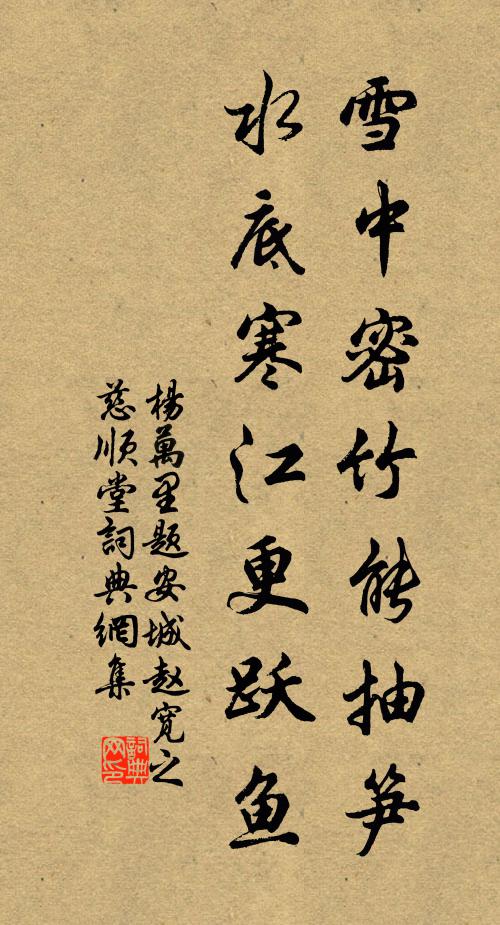 雪中密竹能抽笋
水底寒江更跃鱼
楊萬里题安城赵宽之
慈順堂詞典網集
詞典网印